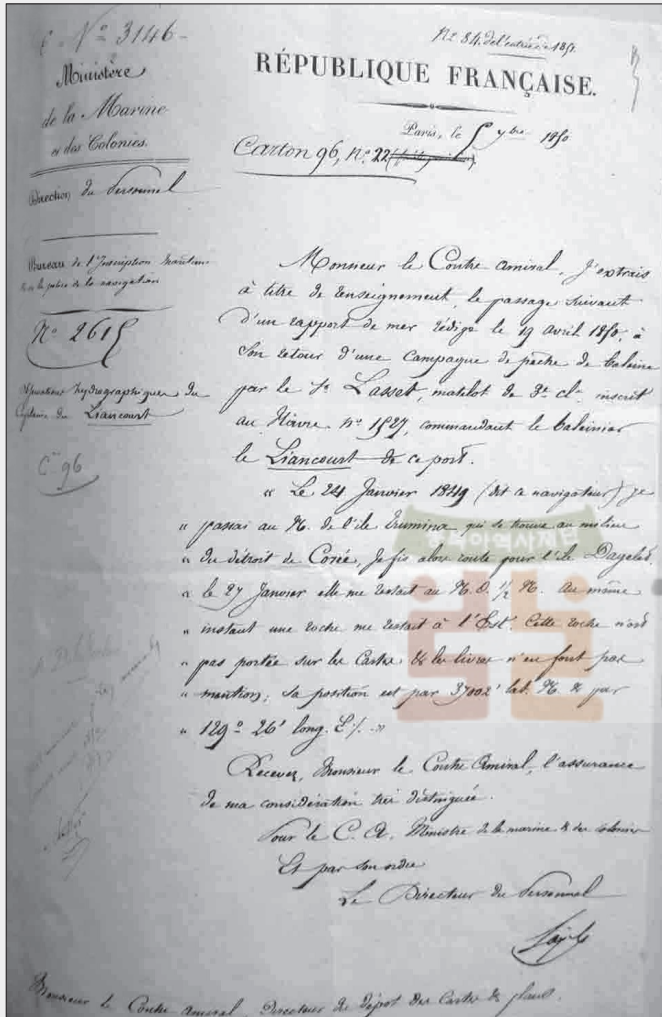 C. Nº 3146
Nº 84. de l'entrée de 1851
Ministère
de la Marine
et des Colonies.
RÉPUBLIQUE FRANÇAISE.
Paris, le 5 7bre 1850
Carton 96, Nº 22
Direction du Personnel
Bureau de l'Inscription Maritime
& de la police de la navigation
Nº 2615
hydrographiques du
Capitaine du Liancourt
Con 96
Monsieur le Contre amiral, J'extrais
à titre de renseignement, le passage suivant
d'un rapport de mer rédigé le 19 avril 1850, à
son retour d'une campagne de pêche de baleine
par le Sr. Lasset, matelot de 3e cl. inscrit
au Hâvre nº 1527, commandant le baleinier
le Liancourt de ce port.
" Le 24 Janvier 1849 (dit ce navigateur) je
" passai au N. de l'ile Trumina qui se trouve au milieu
" du détroit de Corée, Je fis alors route pour l'île Dagelet,
" le 27 Janvier elle me restait au N. O. ½ N. Au même
" instant une roche me restait à l'Est. Cette roche n'est
" pas portée sur les Cartes & les livres n'en font pas
" mention; sa position est par 37º02' lat. N. & par
" 129º 26' long. E. "
Recevez, Monsieur le Contre Amiral, l'assurance
de ma considération très distinguée.
Pour le C. A. Ministre de la marine & des colonies
Et par son ordre
Le Directeur du Personnel
Monsieur le Contre amiral, Directeur du dépôt des Cartes & plans.
동북아역사재단